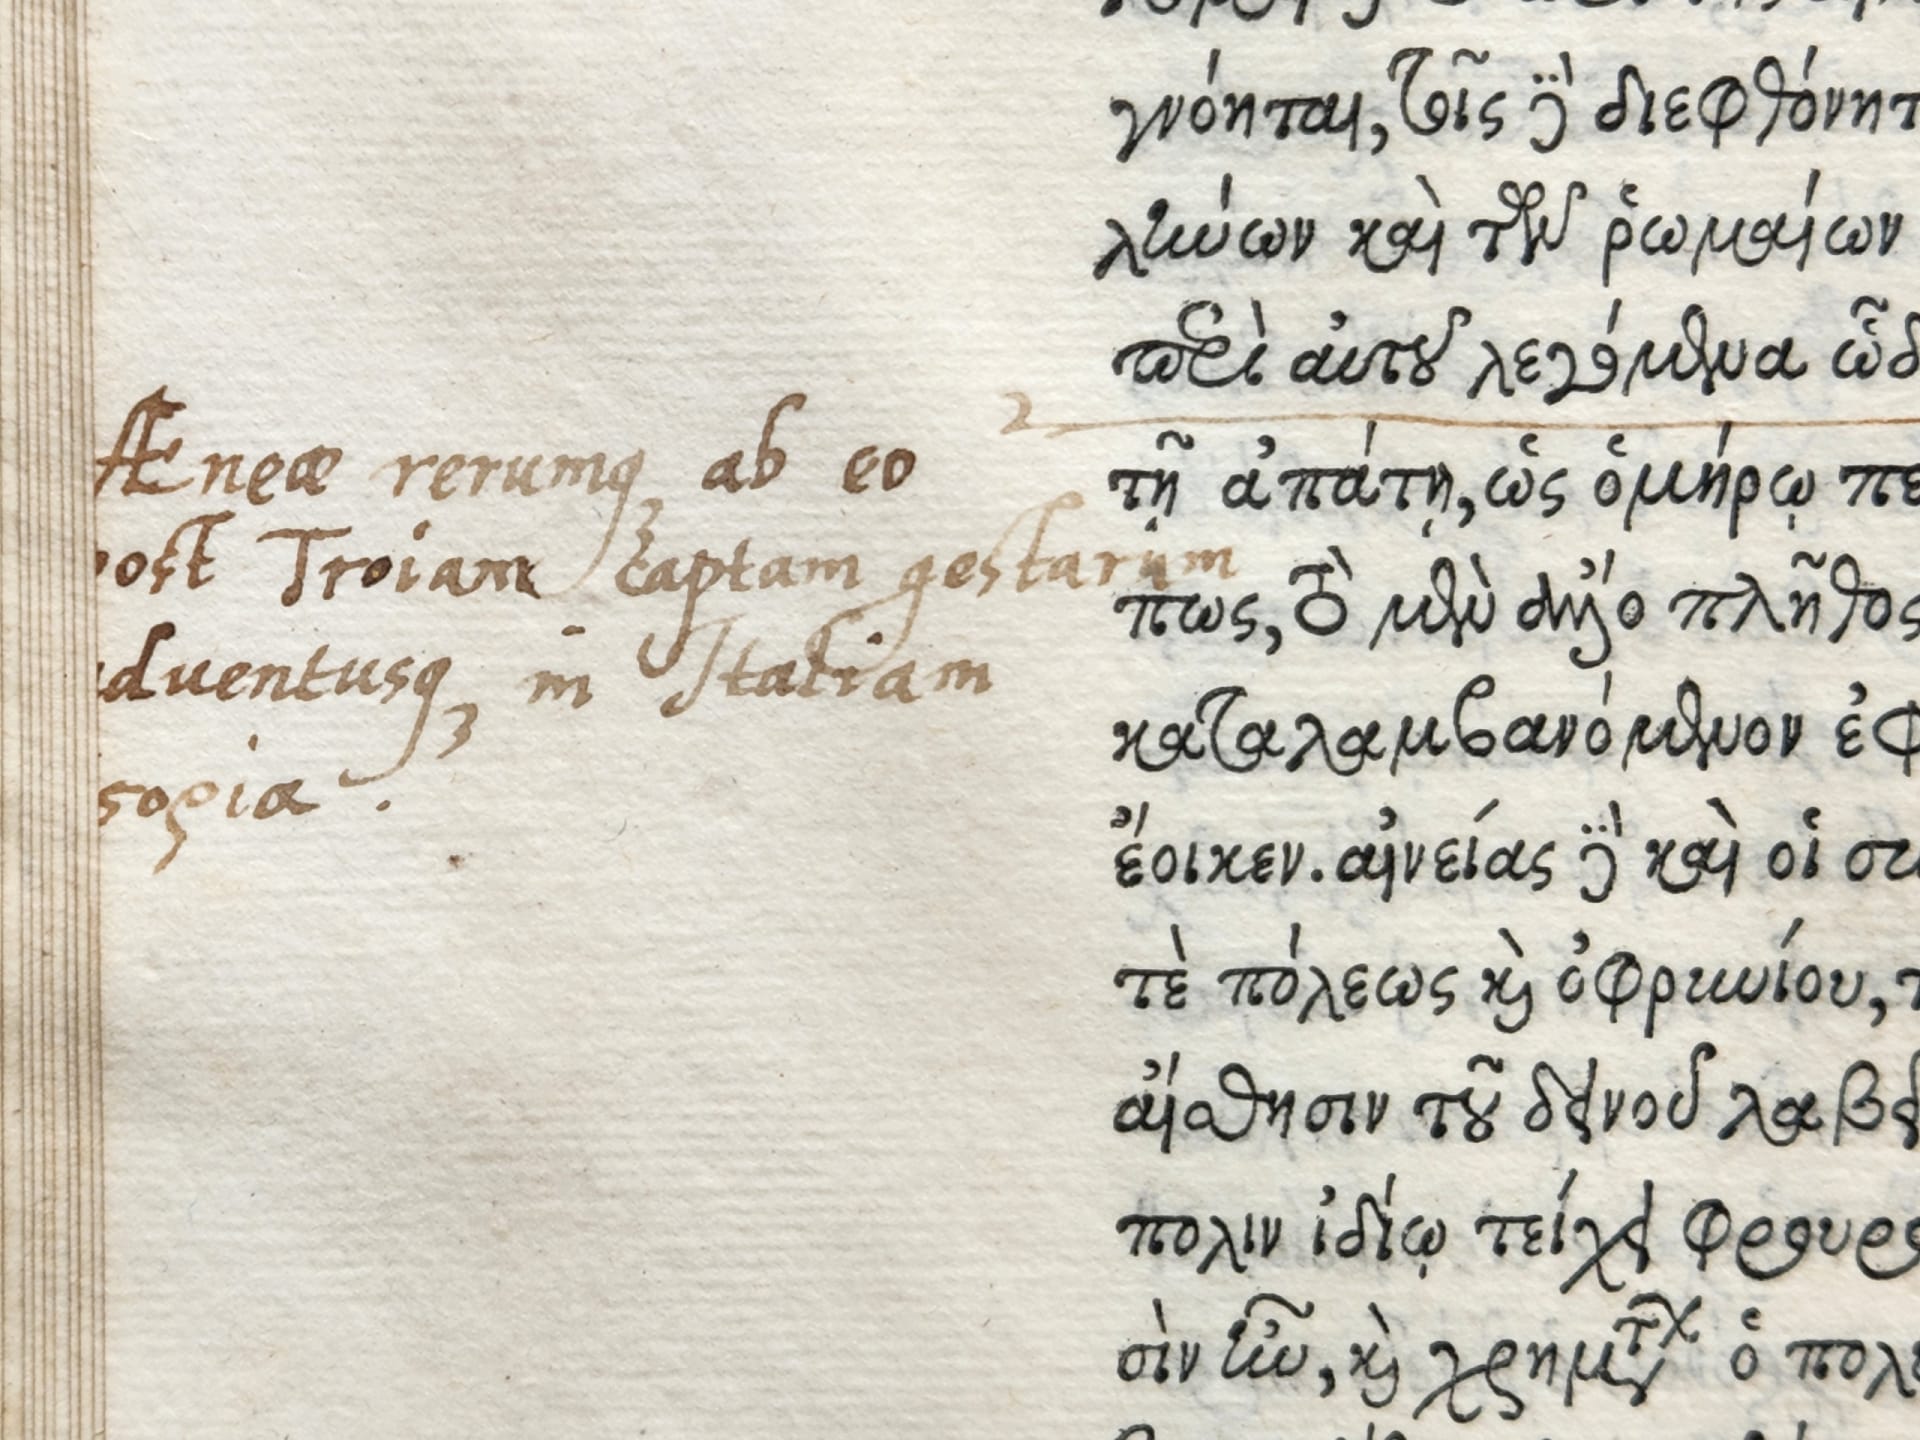 Æneæ rerumq; ab eo
post Troiam captam gestarum
aduentusq; in Italiam
γνόηται, τοῖς δὲ διεφθόνητ
λκύων καὶ τῶν ῥωμαίων
περὶ αὐτοῦ λεγόμενα ὧδ
τῇ ἀπάτῃ, ὡς ὁμήρῳ πε
πως, τὸ μὲν δὴ πλῆθος
καταλαμβανόμενον ἐφ
ἔοικεν. αἰνείας δὲ καὶ οἱ συ
τὲ πόλεως καὶ ὀφρυνίου, τ
αἴσθησιν τοῦ δεινοῦ λαβε
πολιν ἰδίῳ τείχει φρουρο
σὶν ἦν, καὶ χρημάτων ὁ πολ